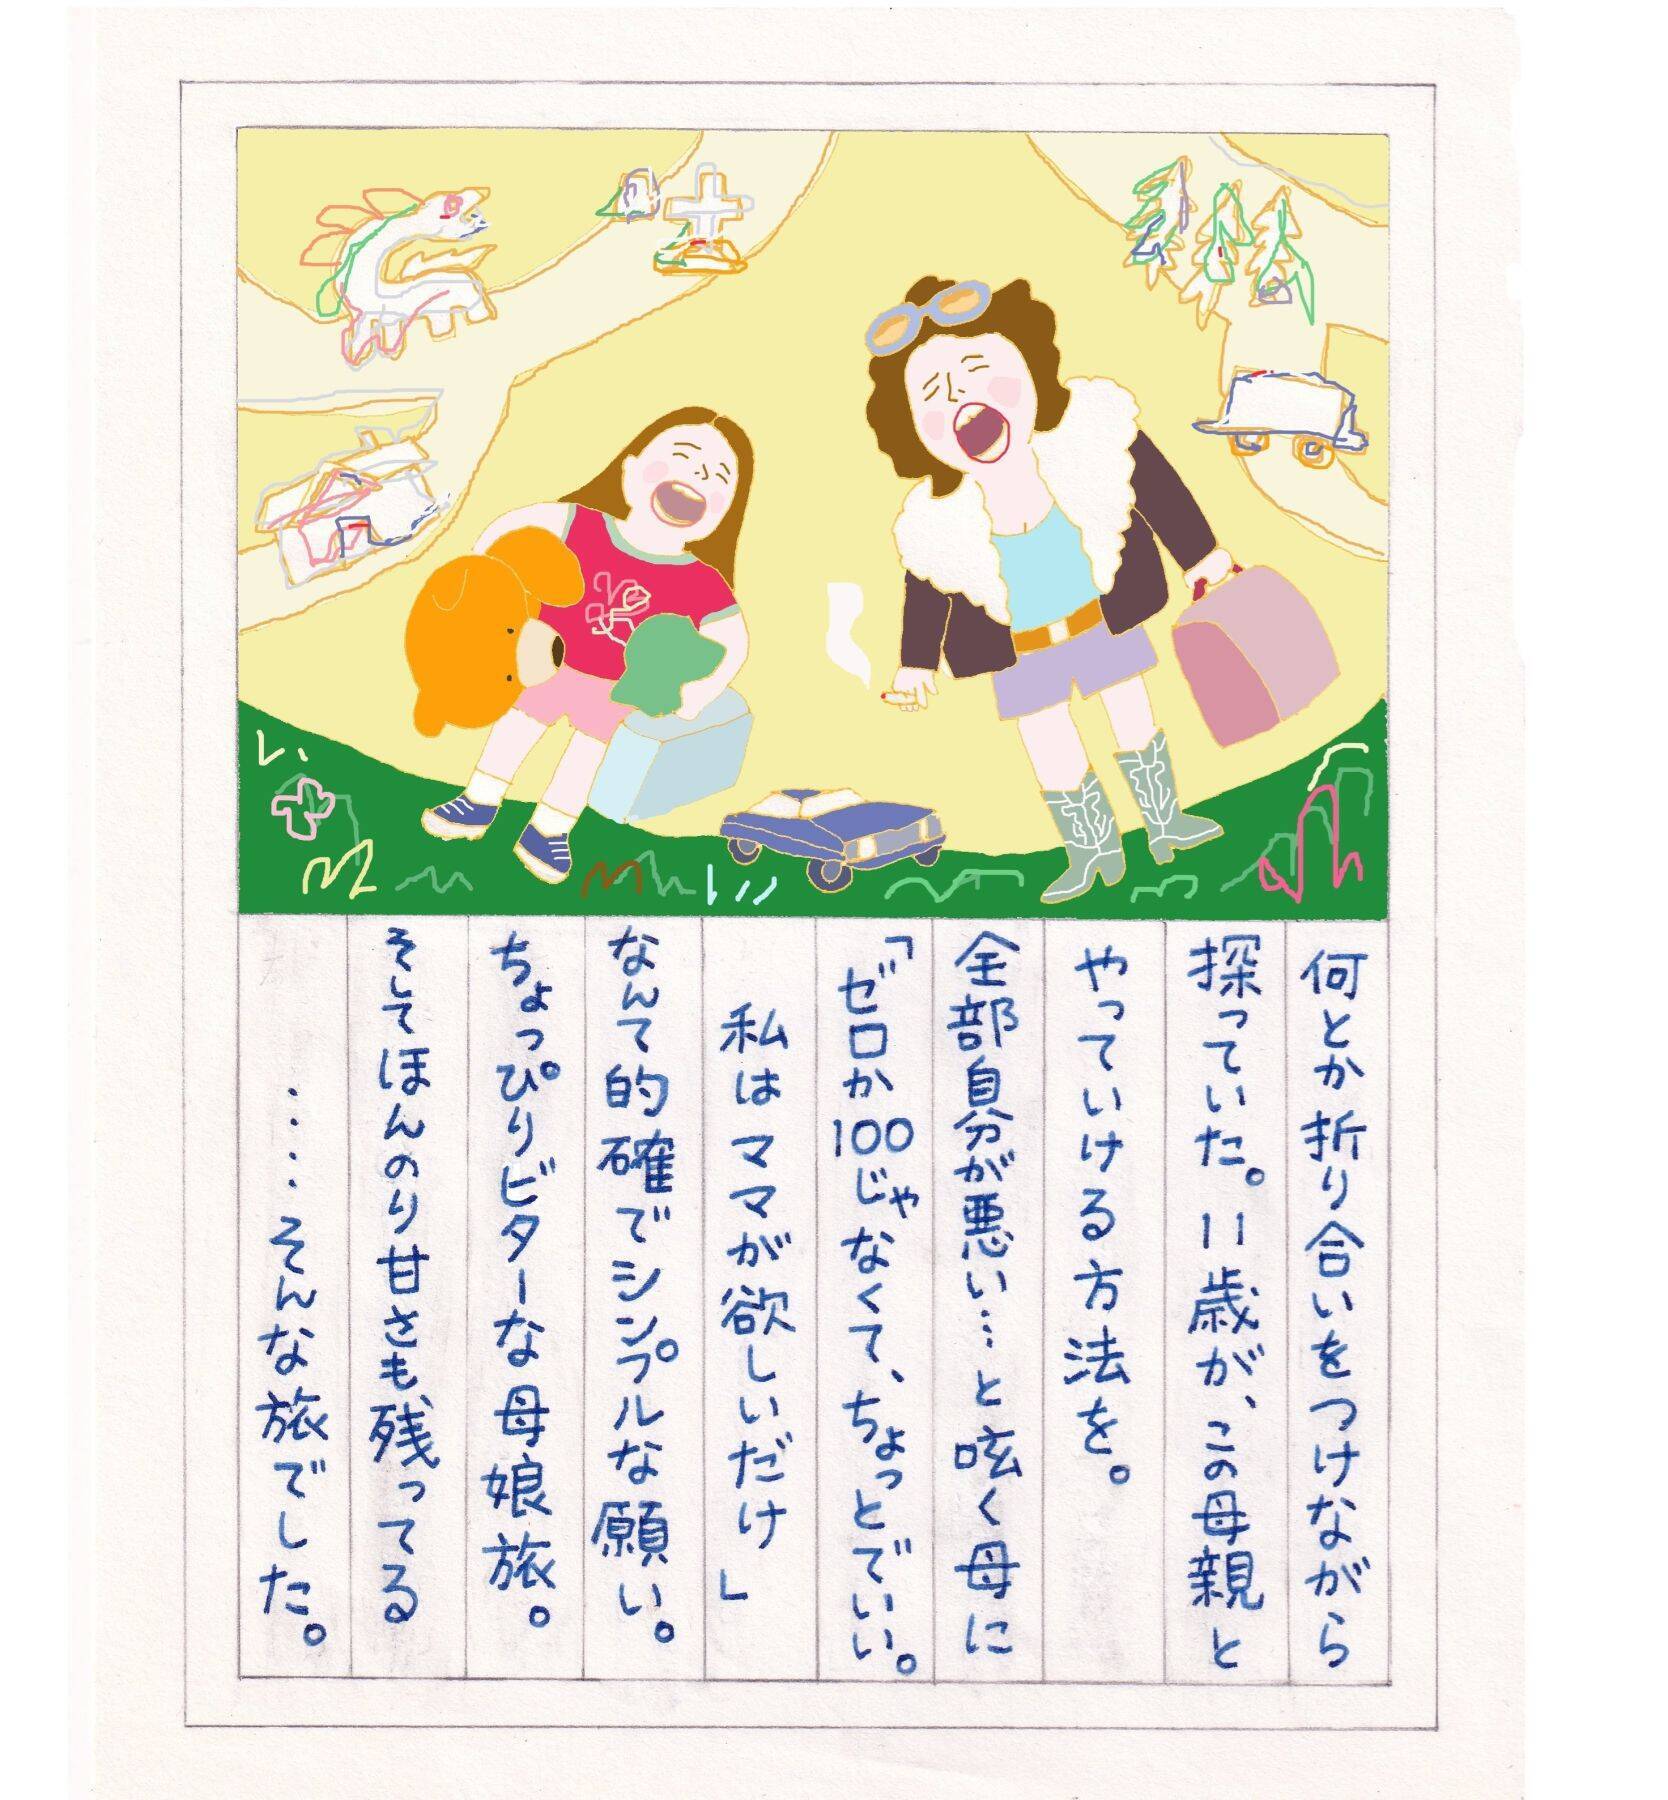 何とか折り合いをつけながら
探っていた。11歳が、この母親と
やっていける方法を。
全部自分が悪い…と呟く母に
「ゼロか100じゃなくて、ちょっとでいい。
私はママが欲しいだけ」
なんて的確でシンプルな願い。
ちょっぴりビターな母娘旅。
そしてほんのり甘さも、残ってる
‥‥そんな旅でした。